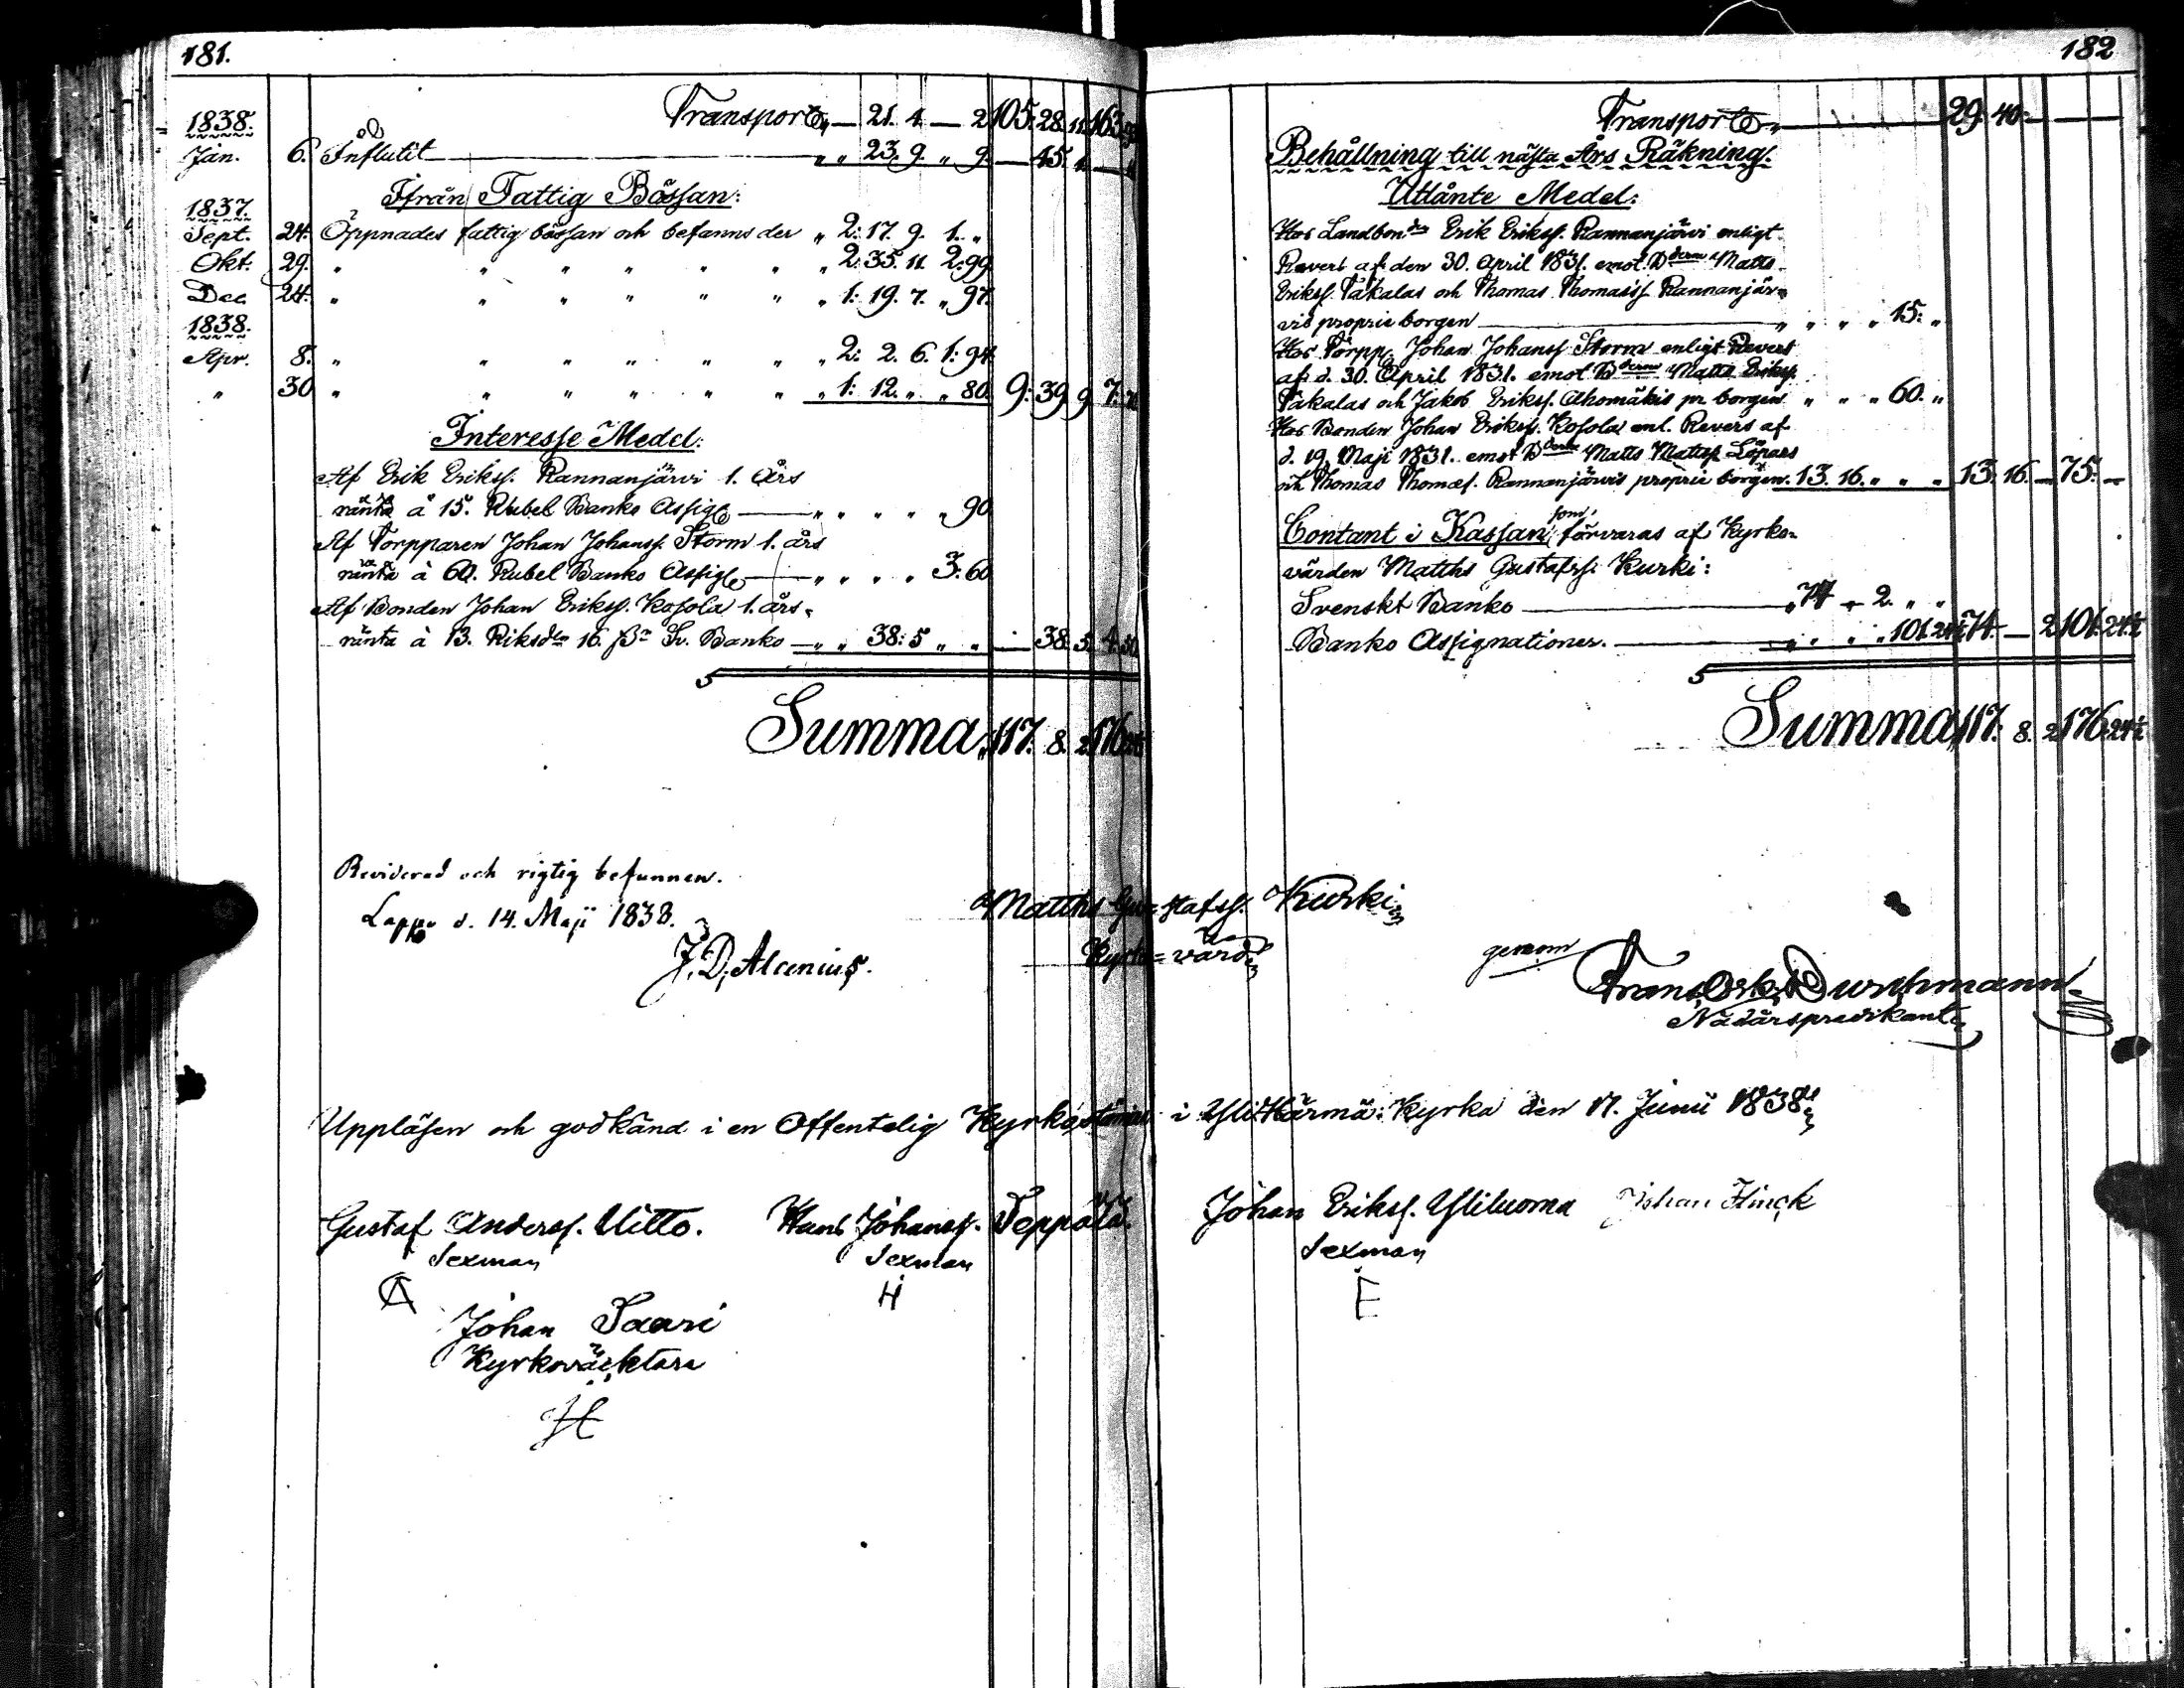 181.
Transport „ — 21. 4. — 2 105. 28. 11. 163.
1838.
Jan. 6. Influtit „ „ 23. 9. „ 9. — 45. 1. —
Ifrån Fattig Bössan:
1837.
Sept. 24. Öppnades fattig bössan och befanns der „ 2: 17. 9. 1. „
Okt. 29. „ „ „ „ „ „ „ 2: 35. 11. 2: 99.
Dec. 24. „ „ „ „ „ „ „ 1: 19. 7. „ 97.
1838.
Apr. 8. „ „ „ „ „ „ „ 2: 2. 6. 1: 94.
„ 30 „ „ „ „ „ „ „ 1: 12. „ „ 80. 9: 39 9 7: 70
Interesse Medel:
Af Erik Erikss. Rannanjärvi 1. Års
ränta à 15. Rubel Banko Assig „ „ „ „ „ 90
Af Torpparen Johan Johanss. Storm 1. års
ränta à 60. Rubel Banko Assig „ „ „ „ 3: 60
Af Bonden Johan Erikss. Kosola 1. års
ränta à 13. Riksd 16. ß Sv. Banko „ „ 38: 5 „ „ — 38. 5. 4. 50
Summa „ 117. 8. 2. 176
Reviderad och rigtig befunnen.
Lappo d. 14. Maji 1838.
J. D. Alcenius.
182
Transport „ 29. 40. — —
Behållning till nästa Års Räkning.
Utlånte Medel:
Hos Landbon Erik Erikss. Rannanjärvi enligt
Revers af den 30. April 1831. emot Bderne Matts
Erikss. Takalas och Thomas Thomass. Rannanjär-
vis proprie borgen „ „ „ „ 15: „
Hos Torpp. Johan Johanss Storm enligt Revers
af d. 30. April 1831. emot Bderne Matts Erikss.
Takalas och Jakob Erikss. Ahomäkis pr. borgen „ „ „ 60. „
Hos Bonden Johan Erikss. Kosola enl. Revers af
d. 19. Maji 1831. emot Bderne Matts Matss. Löpars
och Thomas Thomæs. Rannanjärvis proprie borgen. 13. 16. „ „ „ 13. 16. — 75. —
Contant i Kassan, som förvaras af Kyrko-
värden Matths Gustafss. Kurki:
Svenskt Banko „ 74 — 2. „ „
Banko Assignationer. „ „ „ „ 101. 24½ 74. — 2 101. 24½
Summa 117. 8. 2 176. 24½
Matths Gustafss. Kurki
Kyrko-värd
genom
Frans Osk. Durchmann
Nådårspredikant
Uppläsen och godkänd i en Offentelig Kyrkostämma i Ylikärmä Kyrka den 17. Junii 1838.
Gustaf Anderss. Uitto. Hans Johanss. Seppälä. Johan Erikss. Yliluoma Johan Flinck
Sexman Sexman Sexman
A H E
Johan Saari
Kyrkoväcktare